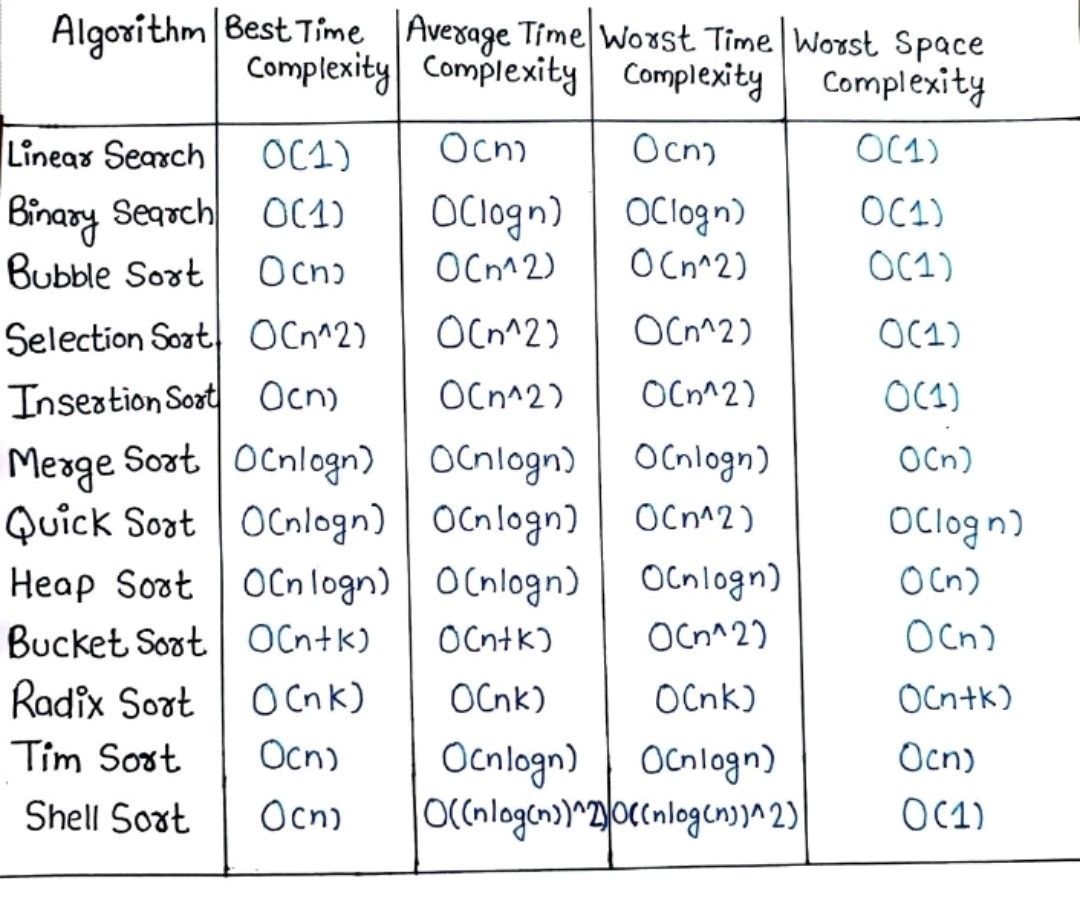 Algorithm | Best Time Complexity | Average Time Complexity | Worst Time Complexity | Worst Space Complexity
Linear Search | O(1) | O(n) | O(n) | O(1)
Binary Search | O(1) | O(logn) | O(logn) | O(1)
Bubble Sort | O(n) | O(n^2) | O(n^2) | O(1)
Selection Sort | O(n^2) | O(n^2) | O(n^2) | O(1)
Insertion Sort | O(n) | O(n^2) | O(n^2) | O(1)
Merge Sort | O(nlogn) | O(nlogn) | O(nlogn) | O(n)
Quick Sort | O(nlogn) | O(nlogn) | O(n^2) | O(logn)
Heap Sort | O(nlogn) | O(nlogn) | O(nlogn) | O(n)
Bucket Sort | O(n+k) | O(n+k) | O(n^2) | O(n)
Radix Sort | O(nk) | O(nk) | O(nk) | O(n+k)
Tim Sort | O(n) | O(nlogn) | O(nlogn) | O(n)
Shell Sort | O(n) | O((nlog(n))^2) | O((nlog(n))^2) | O(1)